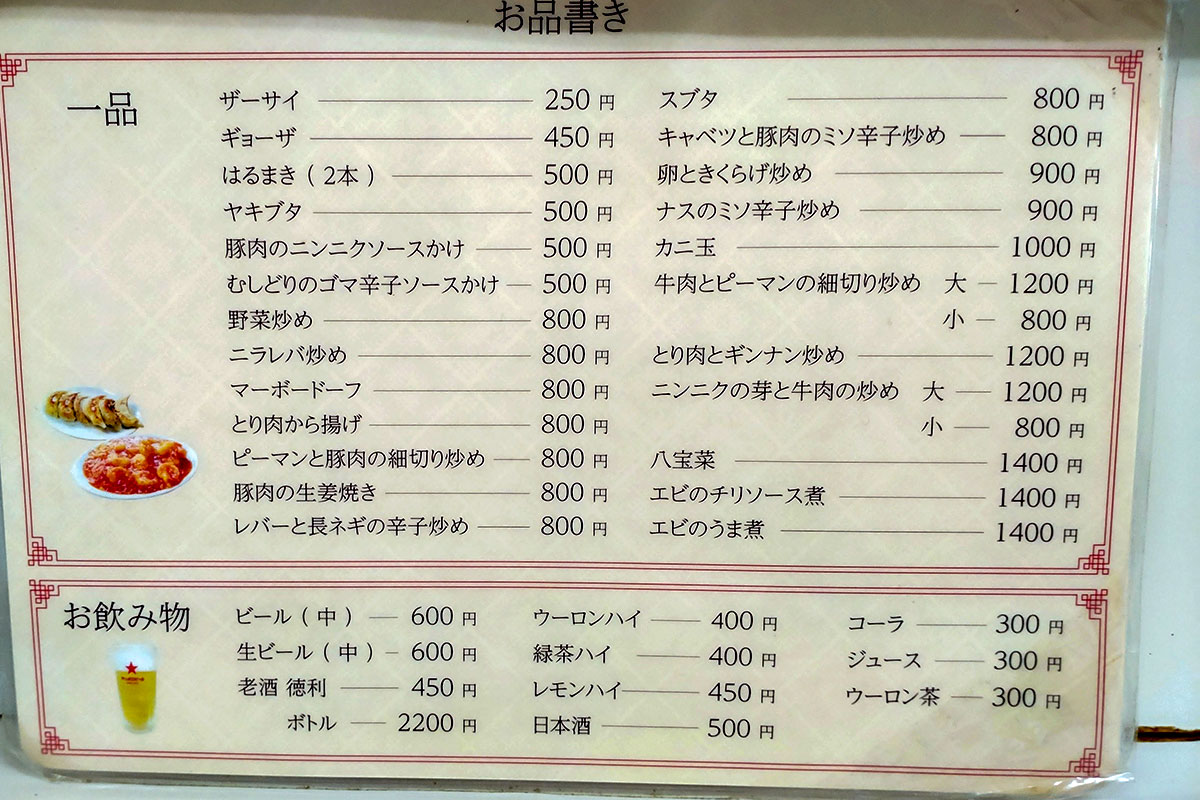 お品書き
一品
ザーサイ 250 円
ギョーザ 450 円
はるまき ( 2本 ) 500 円
ヤキブタ 500 円
豚肉のニンニクソースかけ 500 円
むしどりのゴマ辛子ソースかけ 500 円
野菜炒め 800 円
ニラレバ炒め 800 円
マーボードーフ 800 円
とり肉から揚げ 800 円
ピーマンと豚肉の細切り炒め 800 円
豚肉の生姜焼き 800 円
レバーと長ネギの辛子炒め 800 円
スブタ 800 円
キャベツと豚肉のミソ辛子炒め 800 円
卵ときくらげ炒め 900 円
ナスのミソ辛子炒め 900 円
カニ玉 1000 円
牛肉とピーマンの細切り炒め 大 1200 円
小 800 円
とり肉とギンナン炒め 1200 円
ニンニクの芽と牛肉の炒め 大 1200 円
小 800 円
八宝菜 1400 円
エビのチリソース煮 1400 円
エビのうま煮 1400 円
お飲み物
ビール ( 中 ) 600 円
生ビール ( 中 ) 600 円
老酒 徳利 450 円
ボトル 2200 円
ウーロンハイ 400 円
緑茶ハイ 400 円
レモンハイ 450 円
日本酒 500 円
コーラ 300 円
ジュース 300 円
ウーロン茶 300 円